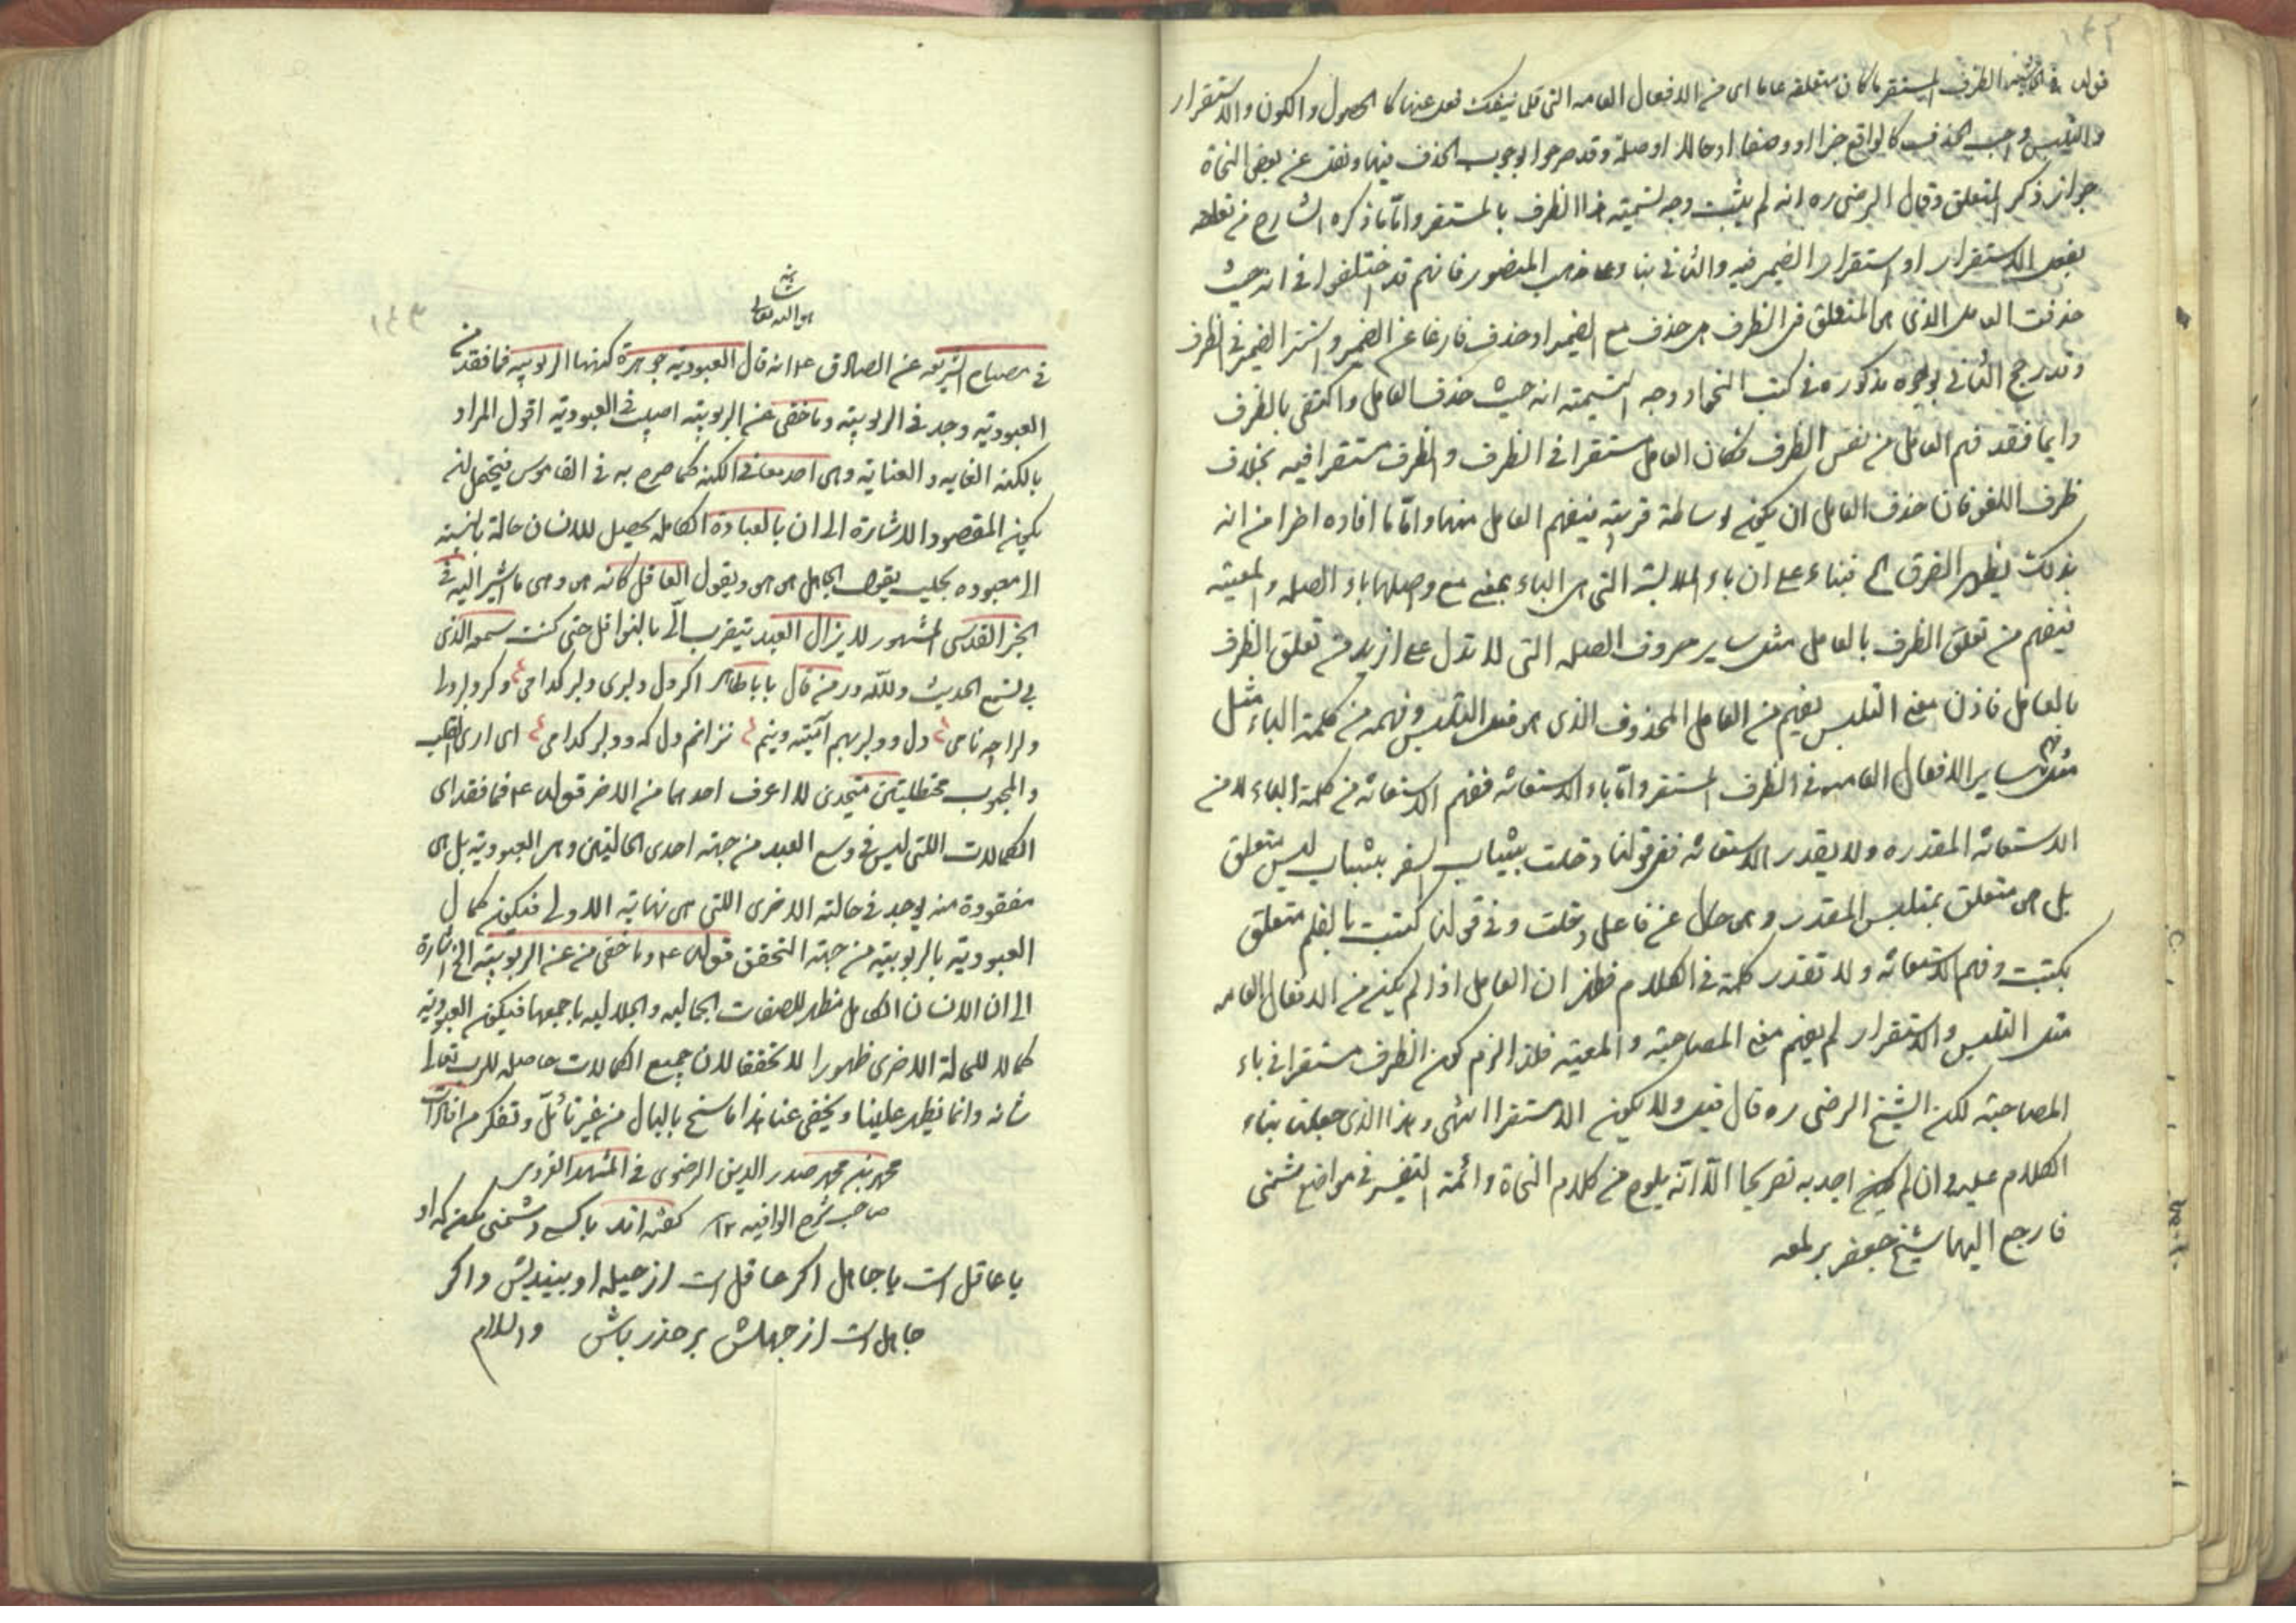 قوله في الحاشية الظرف المستقر ما كان متعلقه عاما اى من الافعال العامه التى قل ينفك فعل عنها كالحصول والكون والاستقرار
والتلبس وا‌جب الحذف كالواقع خبرا او وصفا او حالا او صلة وقد صرحوا بوجوب الحذف فيها ونقل عن بعض النحاة
جواز ذكر المتعلق وقال الرضى ره انه لم يثبت وجه تسميته هذا الظرف بالمستقر واما ما ذكره الشارح من تعلقه
بفعل الاستقرار او استقرار الضمير فيه والثانى بناء على مذهب المنصور فانهم قد اختلفوا فى انه حيث
حذفت العامل الذى هو المتعلق فى الظرف هل حذف مع الضمير او حذف فارغا عن الضمير واستتر الضمير فى الظرف
وقد رجح الثانى بوجوه مذكوره فى كتب النحو ووجه التسمية انه حيث حذف العامل واكتفى بالظرف
وايضا فقد فهم العامل من نفس الظرف فكان العامل مستقرا فى الظرف والظرف مستقرا فيه بخلاف
ظرف اللغو فان حذف العامل ان يكن بواسطة قرينة فيفهم العامل منها واما ما افاده اخرا من انه
بذلك يظهر الفرق الخ فبناء على ان باء الملابسة التى هى الباء بمعنى مع وصلها باء الصلة والمعية
فيفهم من تعلق الظرف بالعامل مثل ساير حروف الصله التى لا تدل على ازيد من تعلق الظرف
بالعامل فاذن معنى التلبس يفهم من العامل المحذوف الذى هو فعل التلبس وفهمه من كلمة الباء مثل
فهم ساير الافعال العامه فى الظرف المستقر واما باء الاستعانه ففهم الاستعانه من كلمة الباء لا من
الاستعانه المقدره ولا يقدر الاستعانه ففى قولنا دخلت بثياب السفر بثياب ليس متعلق
بل هى متعلق بمتلبس المقدر وهى حال عن فاعل دخلت وفى قولنا كتبت بالقلم متعلق
بكتبت وفهم الاستعانه ولا تقدر كلمة فى الكلام فظهر ان العامل اذا لم يكن من الافعال العامه
مثل التلبس والاستقرار لم يفهم معنى المصاحبة والمعية فلذا لزم كون الظرف مستقرا فى باء
المصاحبة لكن الشيخ الرضى ره قال قيل ولا يكون الا مستقرا انتهى وهذا الذى جعلت بناء
الكلام عليه وان لم اجد به تصريحا الا انه يلوح من كلام النحاة وائمة التفسير فى مواضع شتى
فارجع اليها شيخ جعفر بر لمعه
هو الله تعالى شانه
١٤٣
فى مصباح الشريعه عن الصادق ع انه قال العبودية جوهرة كنهها الربوبيه فما فقد من
العبودية وجد فى الربوبية وما خفى عن الربوبية اصيب فى العبودية اقول المراد
بالكنه الغايه والعناية وهى احد معانى الكنه كما صرح به فى القاموس فيحتمل ان
يكون المقصود الاشارة الى ان بالعبادة الكامله يحصل للانسان حالة بالنسبة
الى معبوده بحيث يقول الجاهل هى هى ويقول العاقل كانه هى وهى ما اشير اليه فى
الخبر القدسى المشهور لا يزال العبد يتقرب الى بالنوافل حتى كنت سمعه الذى
بى يسمع الحديث ولله در من قال بابا طاهر اكر دل دلبرى دلبر كدامى وكر دلبر دل
ولرا چه نامى دل ودلبر بهم آميته وينم نزانم دل كه ودلبر كدامى اى ارى القلب
والمحبوب مختلطين متحدين لا اعرف احدهما من الاخر قوله ع فما فقد اى
الكمالات اللتى ليس فى وسع العبد من جهة احدى الحالتين وهى العبودية بل هى
مفقودة منه يوجد فى حالته الاخرى اللتى هى نهاية الاولى فيكون كمال
العبودية بالربوبية من جهة التحقق قوله ع وما خفى من عن الربوبية الخ اشارة
الى ان الانسان الكامل مظهر للصفات الجماليه والجلاليه باجمعها فيكون العبودية
كمالا للحالة الاخرى ظهورا لا تحققا لان جميع الكمالات حاصله للرب تعالى
شانه وانما يظهر علينا ويخفى عنا هذا ما سنح بالبال من غير تامل وتفكر م افادات
محمد بن محمد صدر الدين الرضوى فى المشهد الغروى
صاحب شرح الوافيه ١٢ كفته اند با كسى دشمنى مكن كه او
يا عاقل است يا جاهل اكر عاقل است از حيله او بينديش واكر
جاهل است از جهلش بر حذر باش والسلام